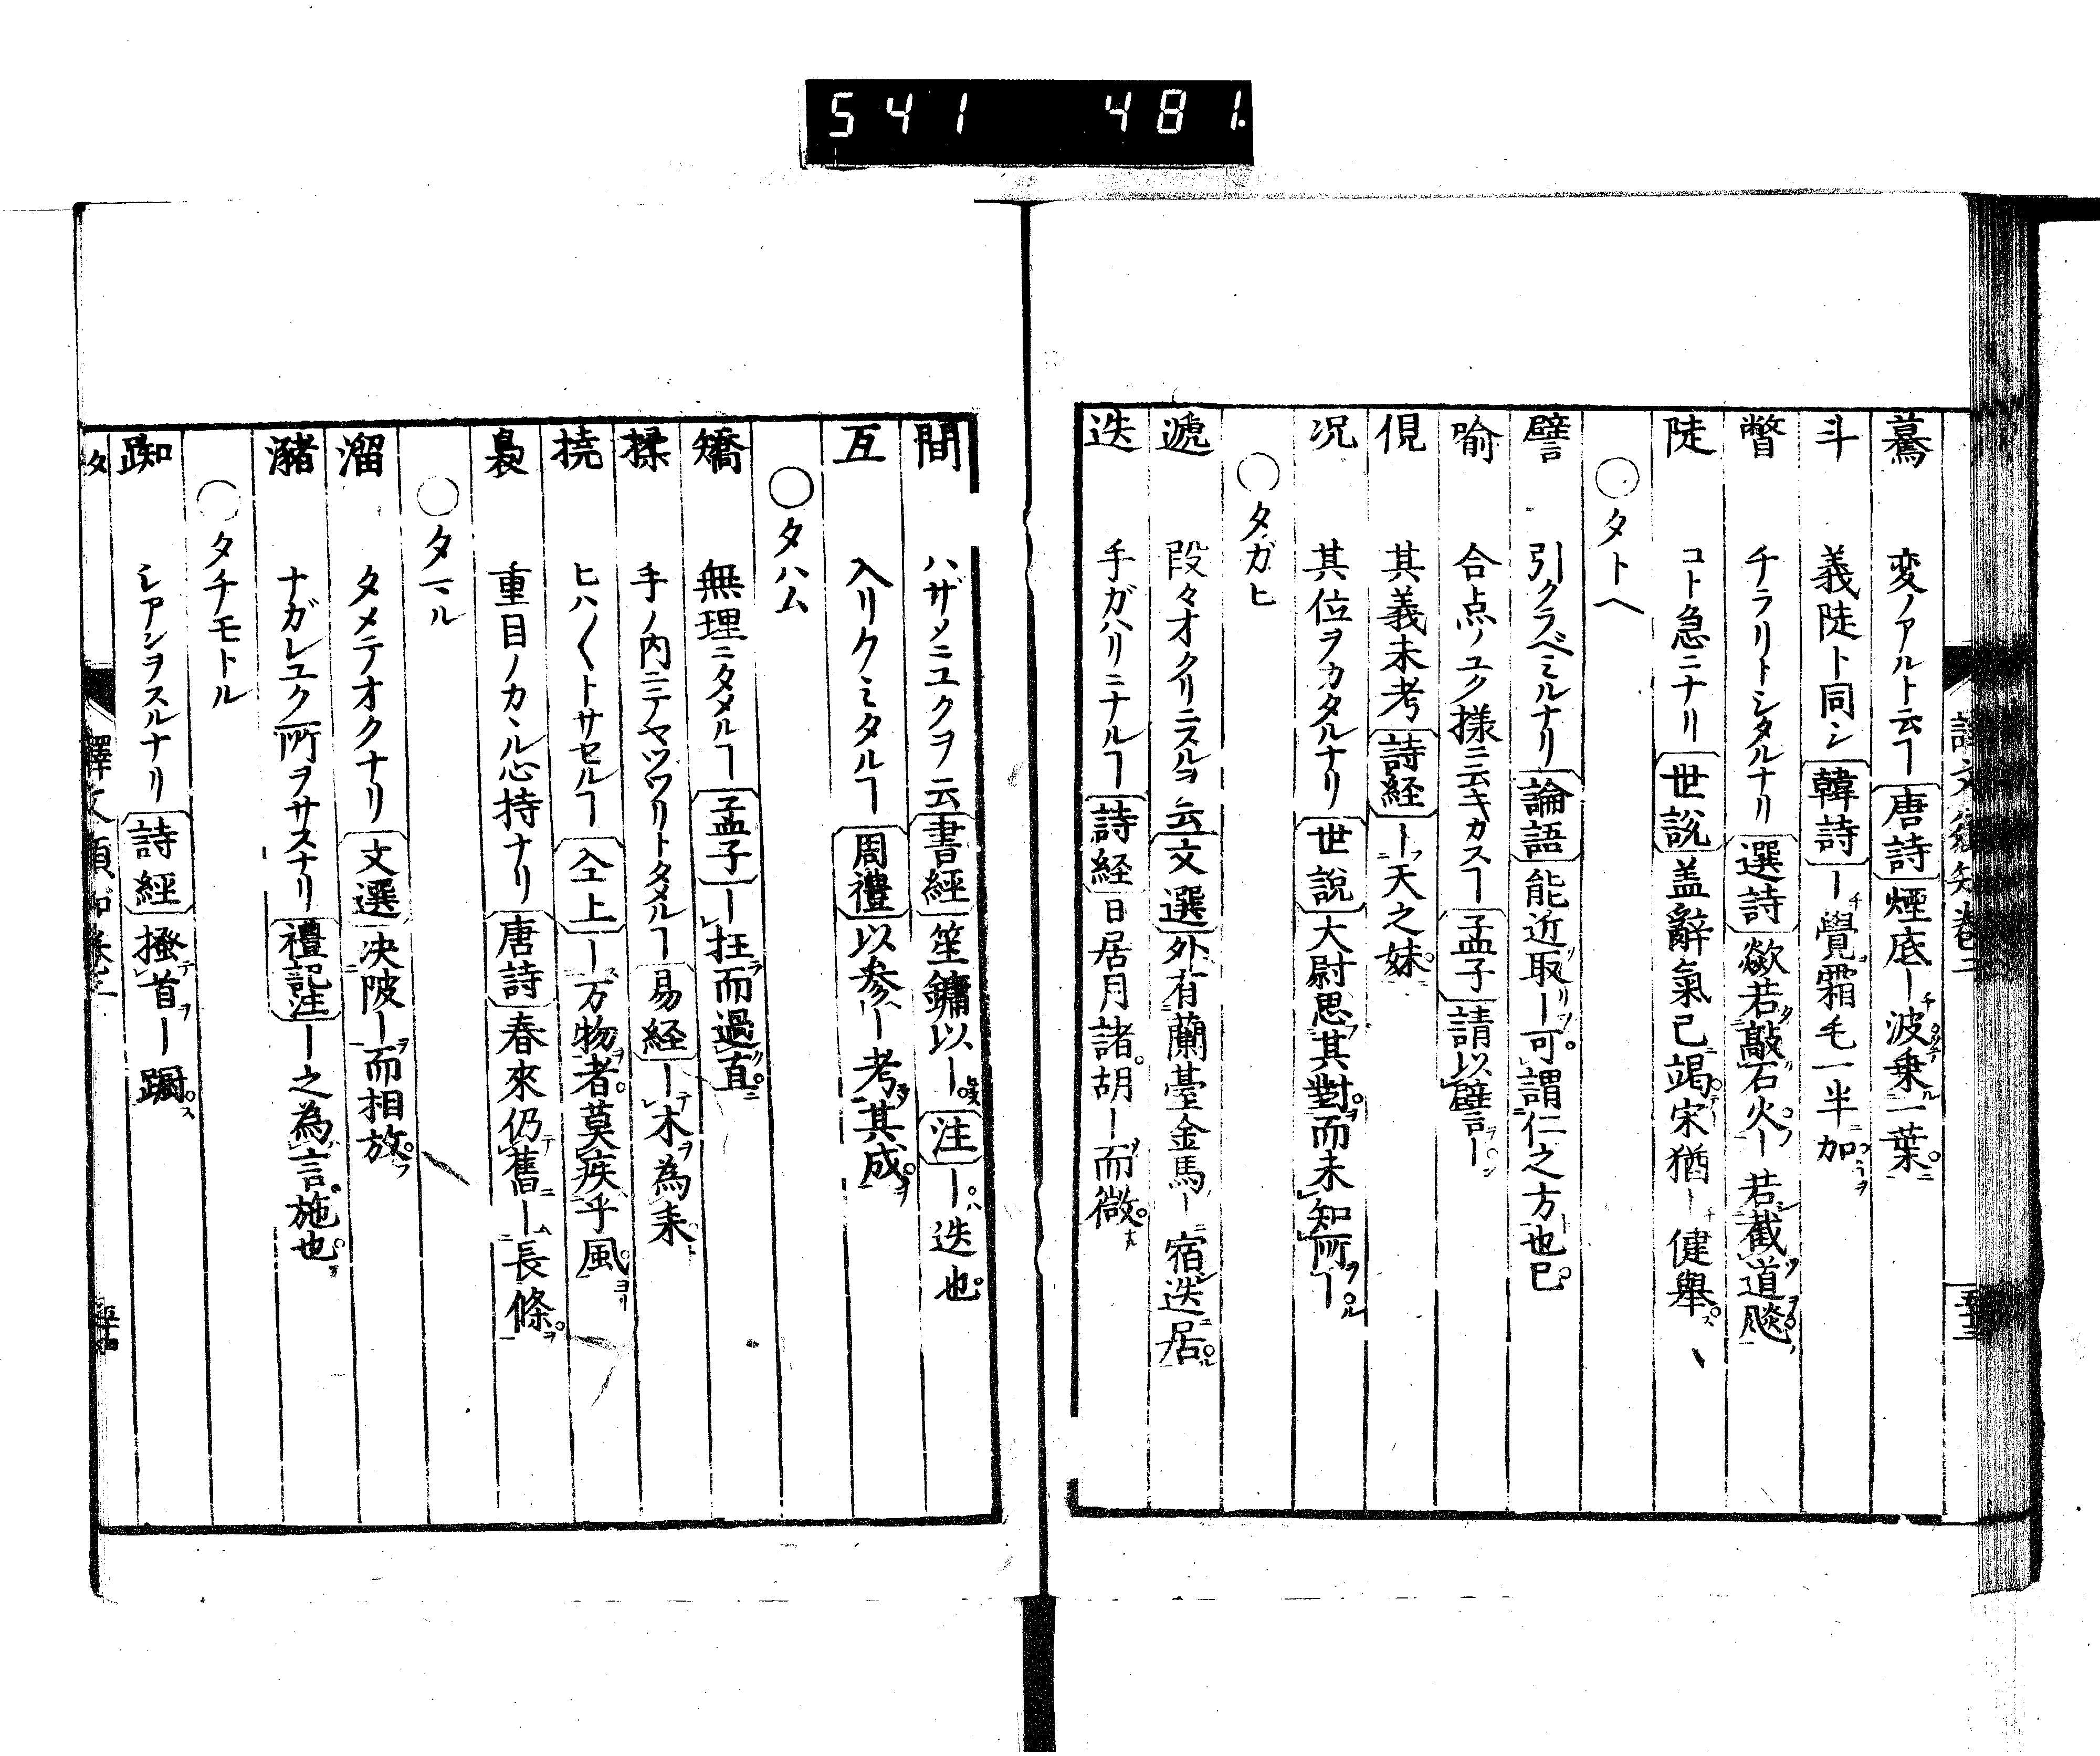 541 481.
驀 変ノアルト云ヿ 唐詩 煙底ー波乗一葉
斗 義陡ト同シ 韓詩 ー覺霜毛一半加
瞥 チラリトシタルナリ 選詩 欻若敲石火ー若截道飇
陡 コト急ニナリ 世説 盖辭氣已竭宋猶ー健舉
○タトヘ
譬 引クラベミルナリ 論語 能近取ー可謂仁之方也已
喻 合点ノユク様ニ云キカスヿ 孟子 請以譬ー
俔 其義未考 詩経 ー天之妹
况 其位ヲカタルナリ 世説 大尉思其對而未知所ー
○タガヒ
遞 段々オクリニスルヲ云 文選 外有蘭臺金馬ー宿迭居
迭 手ガハリニナルヿ 詩経 日居月諸胡ー而微
間 ハザメニユクヲ云 書經 笙鏞以ー 注 ー迭也
互 入リクミタルヿ 周禮 以参ー考其成
○タハム
矯 無理ニタメルヿ 孟子 ー枉而過直
揉 手ノ内ニテヤツワリトタメルヿ 易経 ー木為耒
撓 ヒハ〳〵トサセルヿ 仝上 ー万物者莫疾乎風
裊 重目ノカヽル心持ナリ 唐詩 春來仍舊ー長條
○タマル
溜 タメテオクナリ 文選 决陂ー而相放
瀦 ナガレユク所ヲサスナリ 禮記注 ー之為言施也
○タチモトル
踟 シアンヲスルナリ 詩經 搔首ー躕
タ